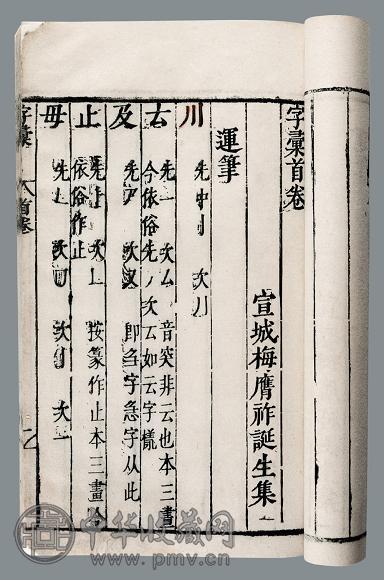 字彙首卷
宣城梅膺祚誕生集
運筆
川 先中 次
𠫓 先一 次厶 音突非云也本三畫
今依俗先 次 如云字
及 先 次 即 字急字从此
止 先 次上 按篆作止本三畫今
依俗作止
毋 先 次 次 次一
字彙 首卷
中华收藏网
www.pmv.cn